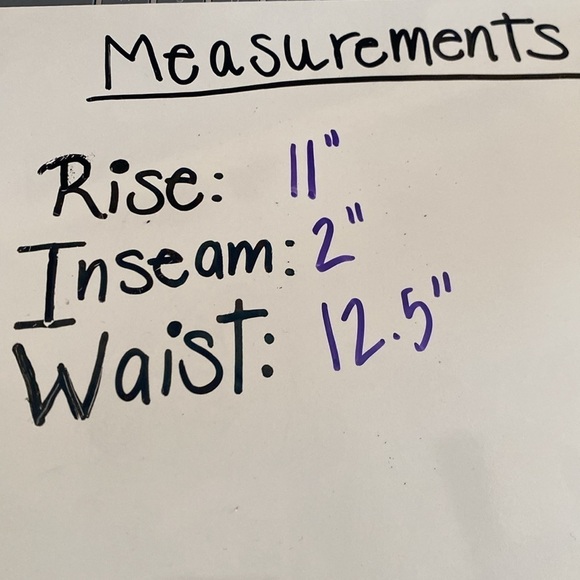 Measurements
Rise: 11"
Inseam: 2"
Waist: 12.5"